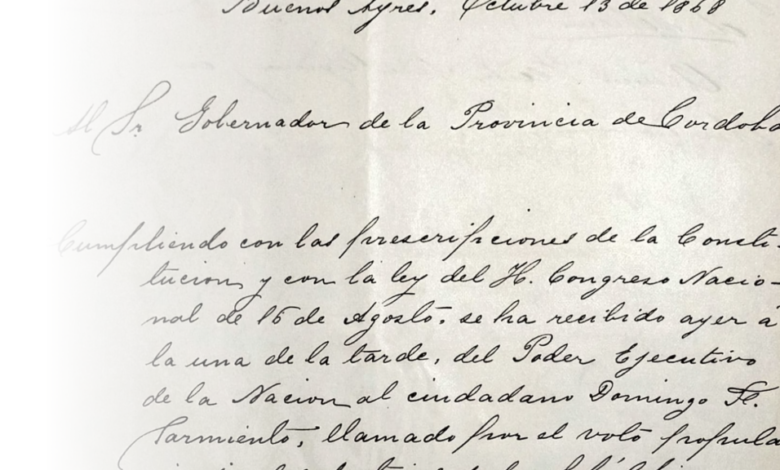 Buenos Ayres, Octubre 13 de 1868
Al Sr Gobernador de la Provincia de Cordoba
Cumpliendo con las prescripciones de la Consti-
tucion, y con la ley del H. Congreso Nacio-
nal de 16 de Agosto, se ha recibido ayer á
la una de la tarde, del Poder Ejecutivo
de la Nacion al ciudadano Domingo F.
Sarmiento, llamado por el voto popula